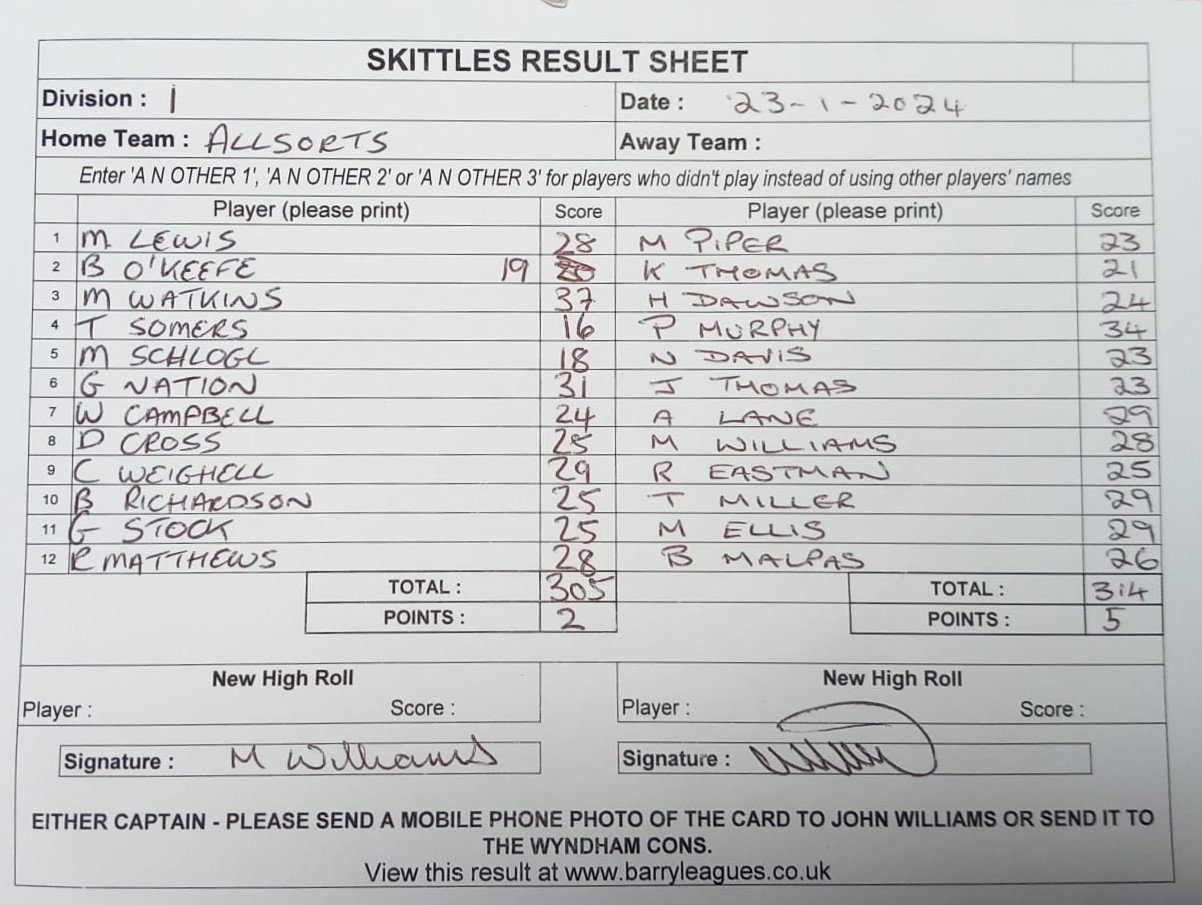 SKITTLES RESULT SHEET
Division : 1 Date : 23-1-2024
Home Team : ALLSORTS Away Team :
Enter 'A N OTHER 1', 'A N OTHER 2' or 'A N OTHER 3' for players who didn't play instead of using other players' names
Player (please print) Score Player (please print) Score
1 M LEWIS 28 M PIPER 23
2 B O'KEEFE 19 K THOMAS 21
3 M WATKINS 37 H DAWSON 24
4 T SOMERS 16 P MURPHY 34
5 M SCHLOGL 18 N DAVIS 23
6 G NATION 31 J THOMAS 23
7 W CAMPBELL 24 A LANE 29
8 D CROSS 25 M WILLIAMS 28
9 C WEIGHELL 29 R EASTMAN 25
10 B RICHARDSON 25 T MILLER 29
11 G STOCK 25 M ELLIS 29
12 R MATTHEWS 28 B MALPAS 26
TOTAL : 305 TOTAL : 314
POINTS : 2 POINTS : 5
New High Roll New High Roll
Player : Score : Player : Score :
Signature : M Williams Signature :
EITHER CAPTAIN - PLEASE SEND A MOBILE PHONE PHOTO OF THE CARD TO JOHN WILLIAMS OR SEND IT TO
THE WYNDHAM CONS.
View this result at www.barryleagues.co.uk